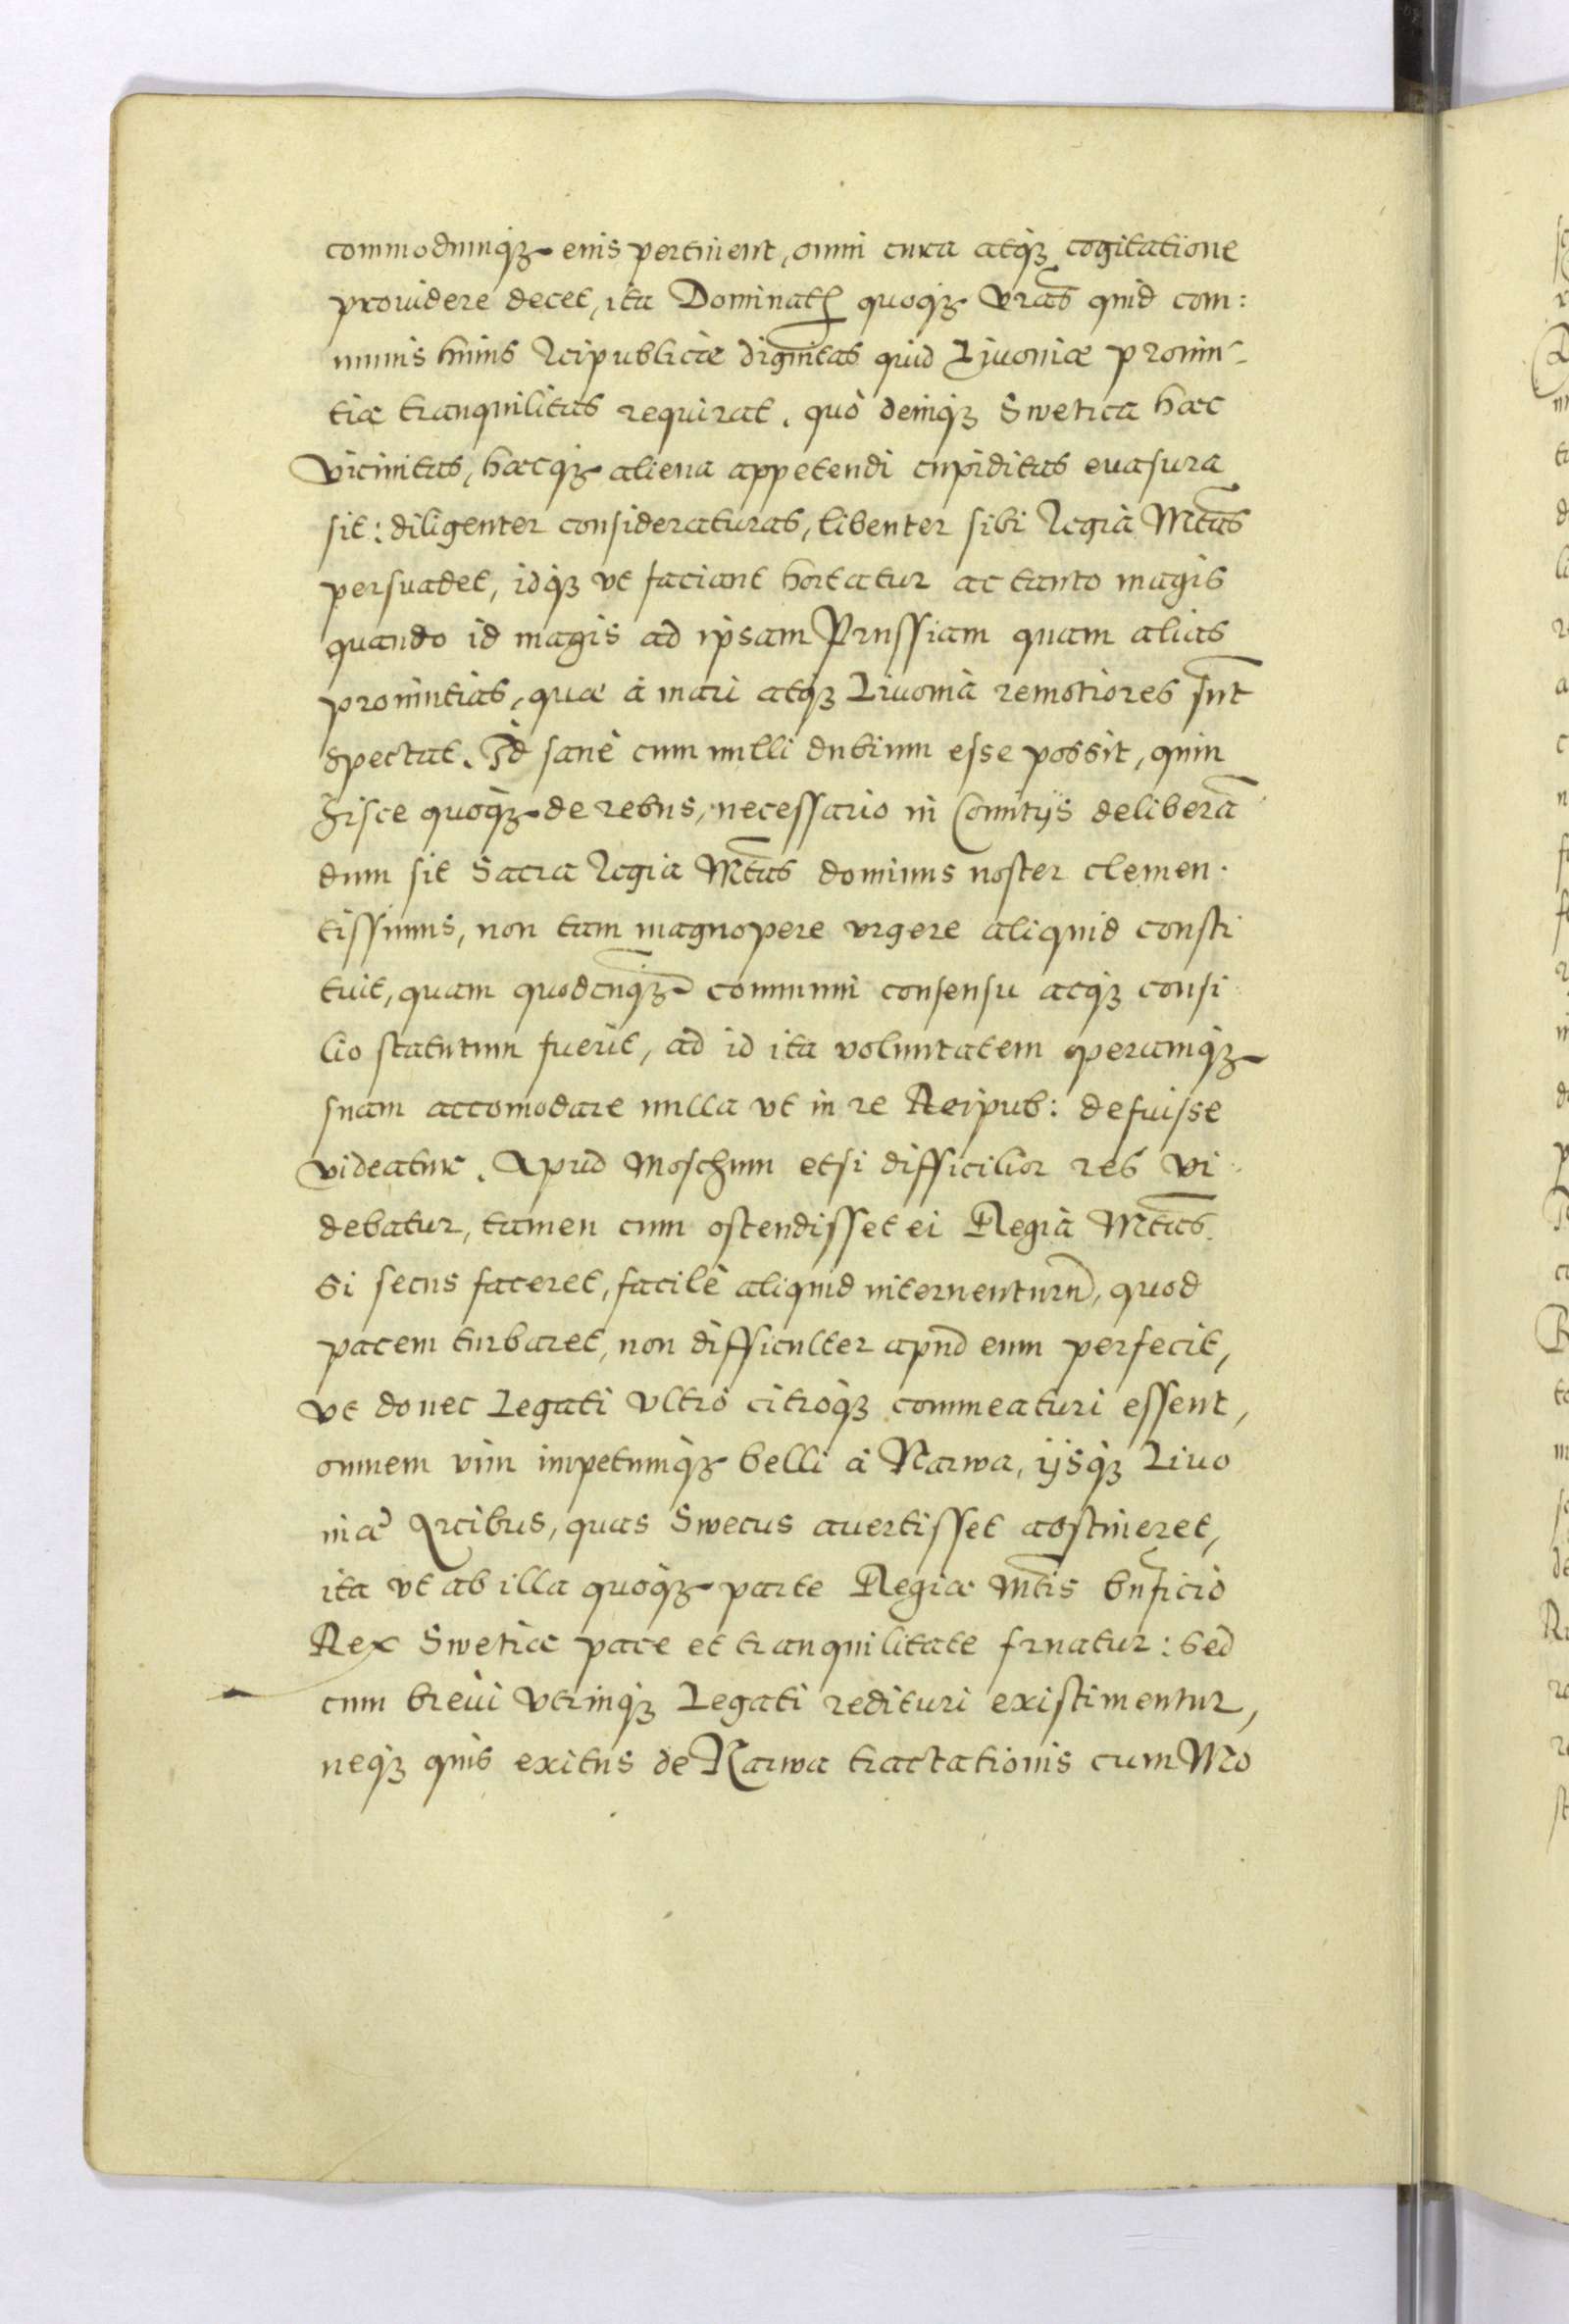 commodumq́ꝫ eius pertinent, omni cura atq́ꝫ cogitatione
prouidere decet, ita Dominat. quoq́ꝫ Vr̃as quid com:
munis huius Reipublicæ dignitas quid Liuoniæ prouin-
tiæ tranquilitas requirat. quò deniq́ꝫ Swetica hæc
vicinitas, hæcq́ꝫ aliena appetendi cupiditas euasura
sit: diligenter consideraturas, libenter sibi Regia Mt̃as
persuadet, idq́ꝫ vt faciant hortatur ac tanto magis
quando id magis ad ipsam Prussiam quam alias
prouintias, quæ à mari atq́ꝫ Liuonia remotiores sũt
spectat. Id sanè cum nulli dubium esse possit, quin
hisce quoq́ꝫ de rebus, necessario in Comitijs deliberã
dum sit Sacra Regia Mt̃as dominus noster clemen-
tissimus, non tam magnopere vrgere aliquid consti
tuit, quam quodcunq́ꝫ communi consensu atq́ꝫ consi
lio statutum fuerit, ad id ita voluntatem operamq́ꝫ
suam accomodare nulla vt in re Reipub: defuisse
videatur. Apud Moschum etsi difficilior res vi-
debatur, tamen cum ostendisset ei Regia Mt̃as.
si secus faceret, facilè aliquid interuenturũ, quod
pacem turbaret, non difficulter apud eum perfecit,
vt donec Legati vltrò citroq́ꝫ commeaturi essent,
omnem vim impetumq́ꝫ belli à Narwa, ijsq́ꝫ Liuo
niæ Arcibus, quas Swecus auertisset abstineret,
ita vt ab illa quoq́ꝫ parte Regiæ Mt̃is bnf̃icio
Rex Swetiæ pace et tranquilitate fruatur: sed
cum breui vtrinq́ꝫ Legati redituri existimentur,
neq́ꝫ quis exitus de Narwa tractationis cum Mo